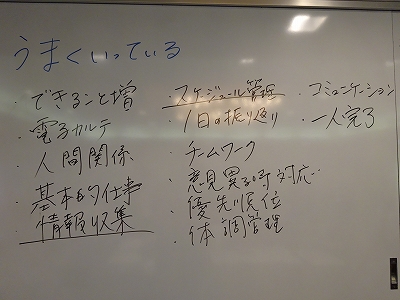 うまくいっている
・できること増
・電子カルテ
・人間関係
・基本的仕事
・情報収集
・スケジュール管理
・1日の振り返り
・チームワーク
・意見異る時対応
・優先順位
・体調管理
・コミュニケーション
・一人完了